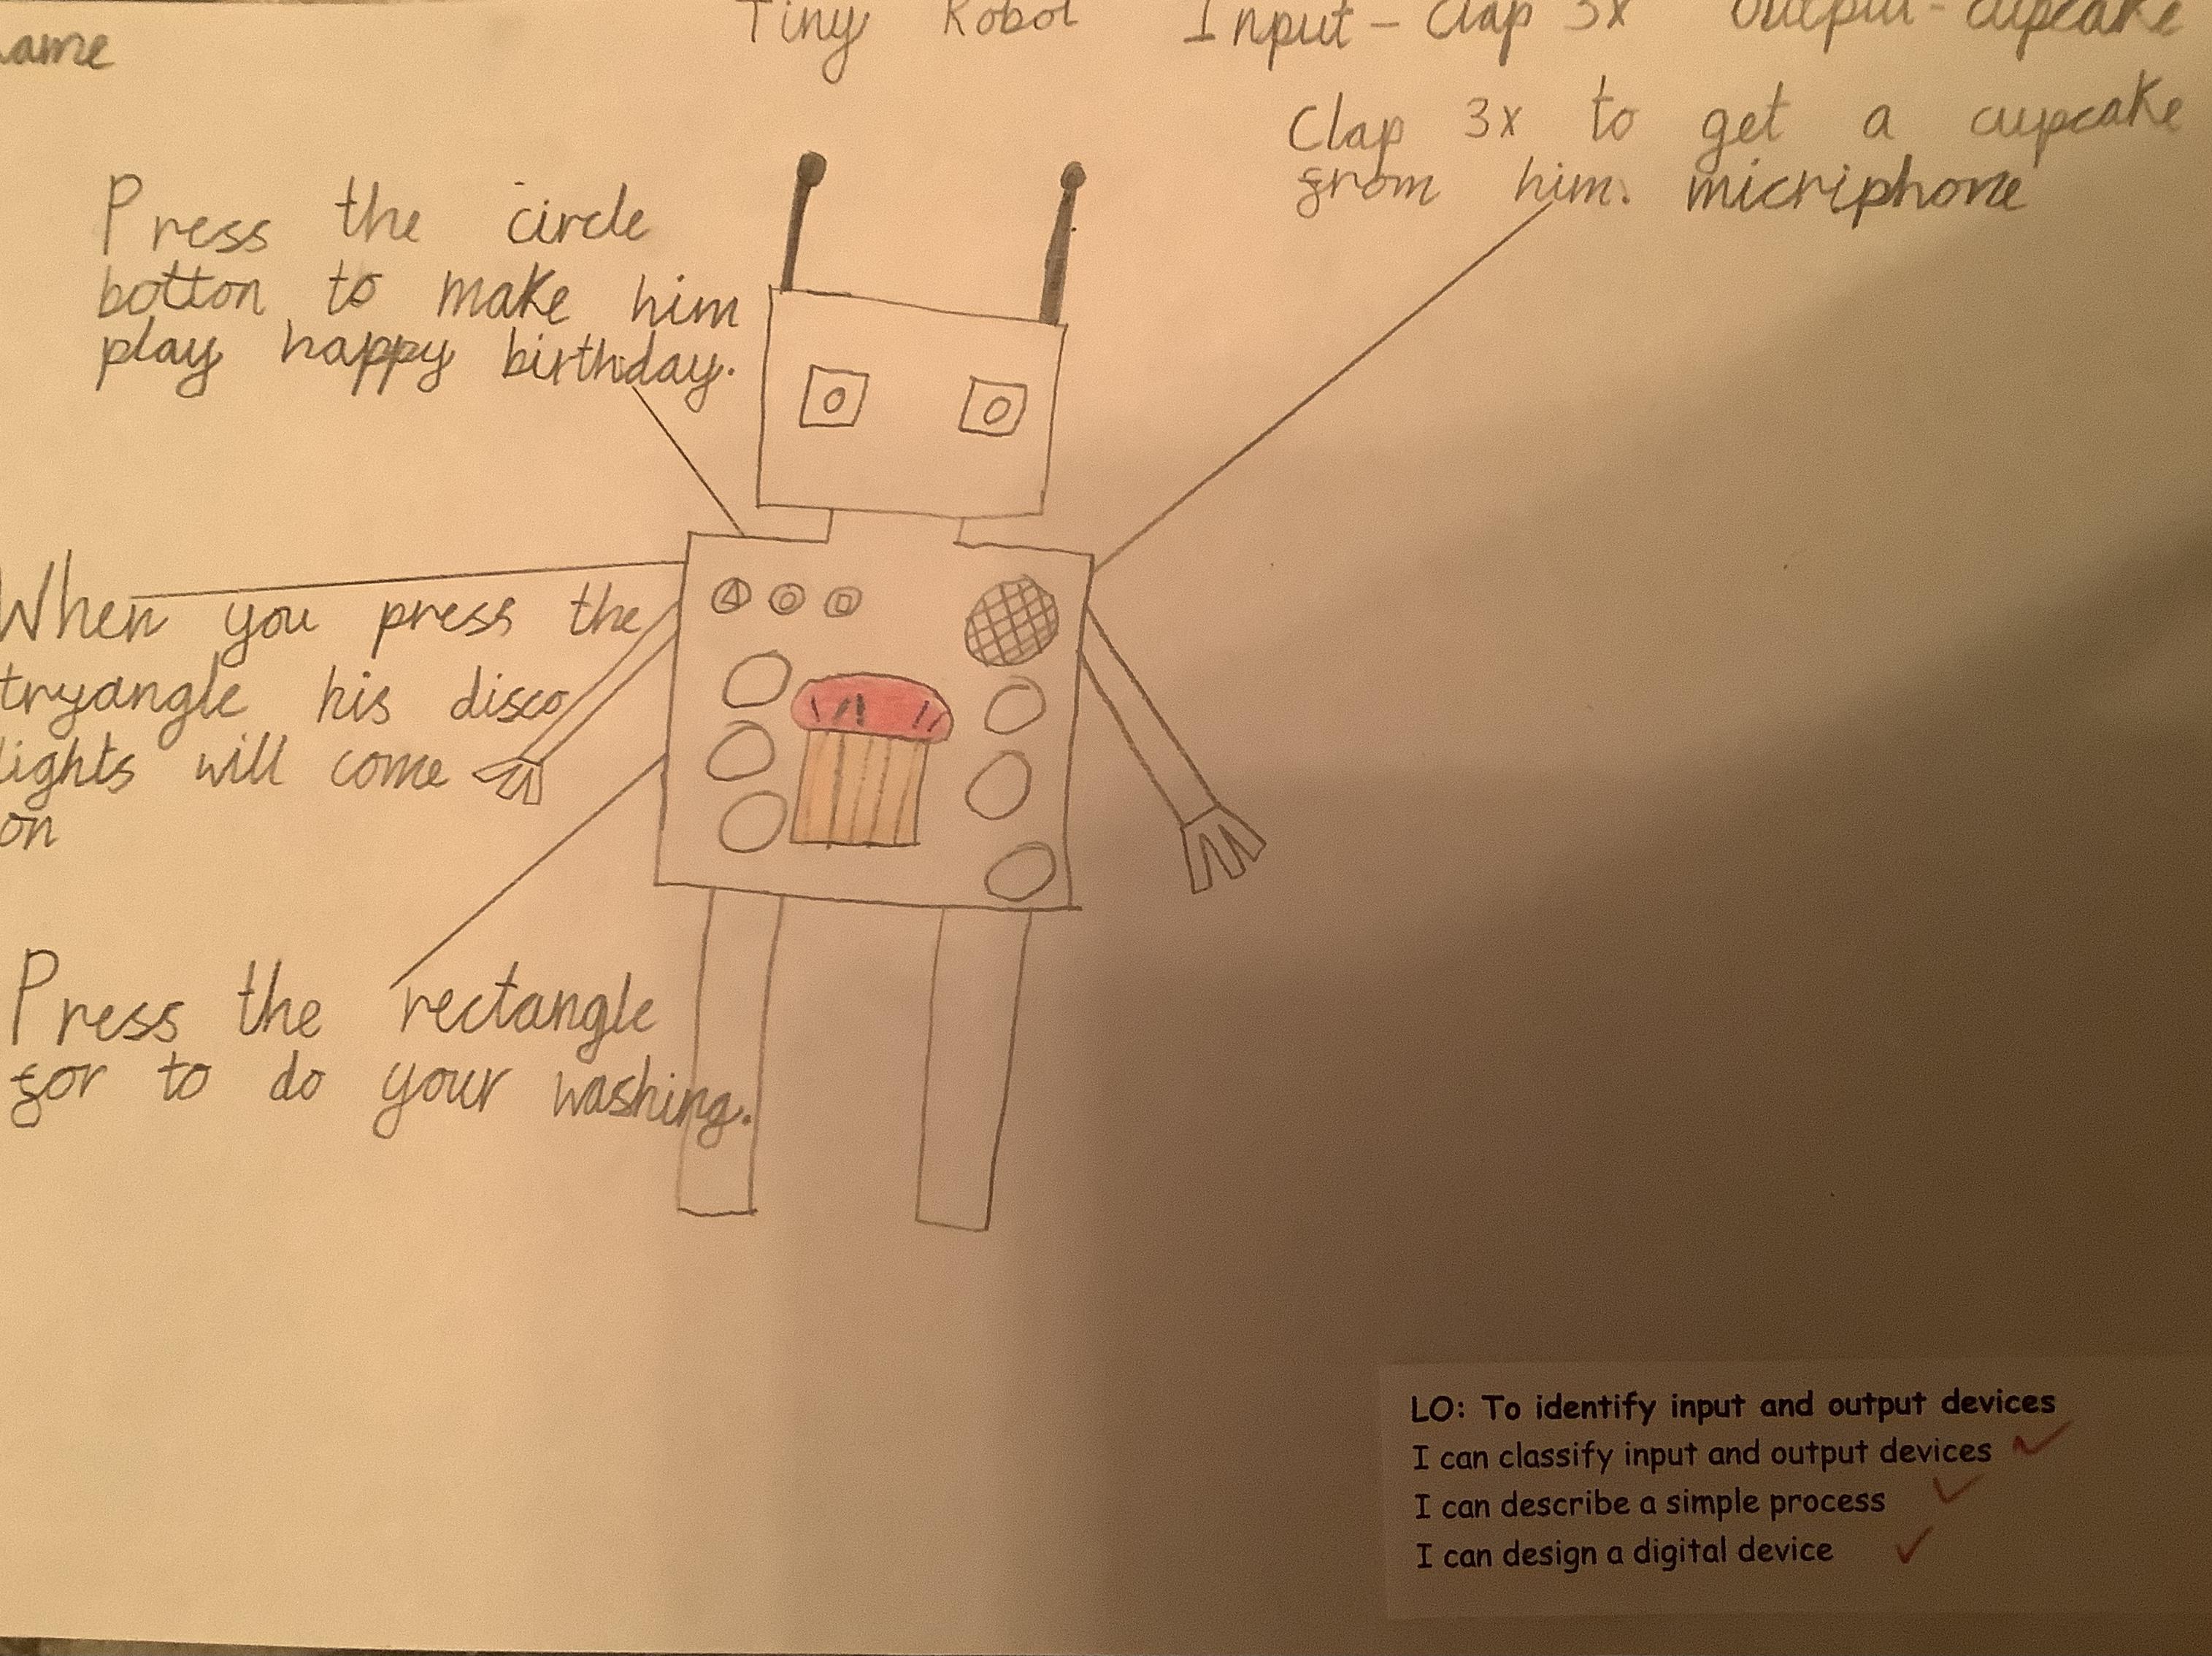 Tiny Robot Input - Clap 3x Output - cupcake
ame
Clap 3x to get a cupcake
from him. micriphone
Press the circle
botton to make him
play happy birthday.
When you press the
tryangle his disco
lights will come
on
Press the rectangle
for to do your washing.
LO: To identify input and output devices
I can classify input and output devices
I can describe a simple process
I can design a digital device